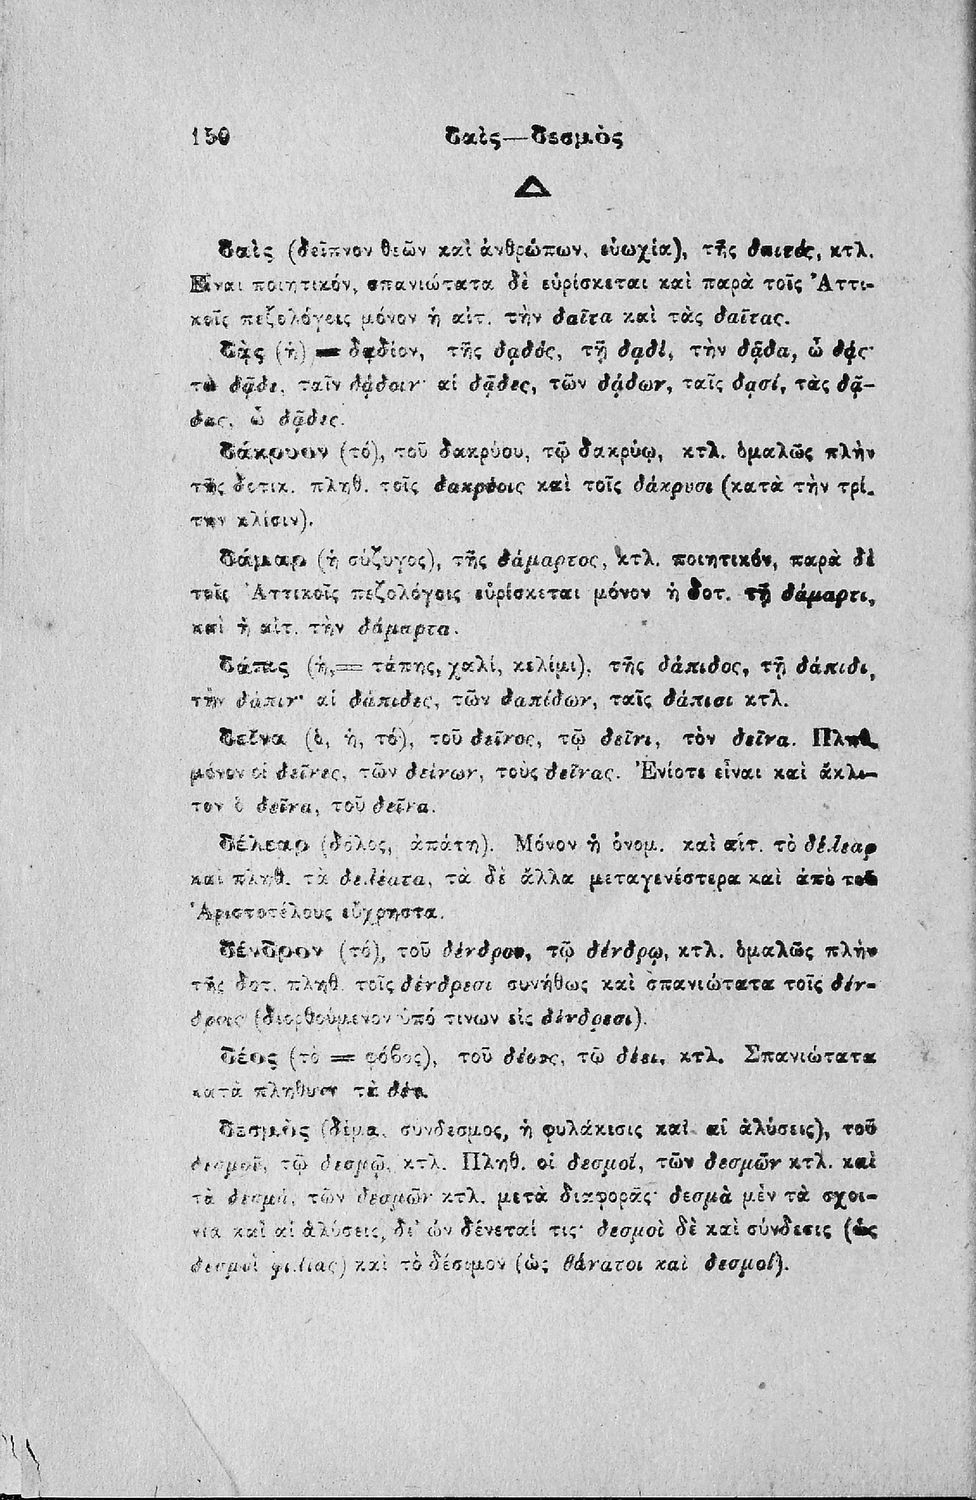 150 δαὶς—δεσμὸς
Δ
δαὶς (δεῖπνον θεῶν καὶ ἀνθρώπων, εὐωχία), τῆς δαιτός, κτλ.
Εἶναι ποιητικόν, σπανιώτατα δὲ εὑρίσκεται καὶ παρὰ τοῖς Ἀττι-
κοῖς πεζολόγοις μόνον ἡ αἰτ. τὴν δαῖτα καὶ τὰς δαῖτας.
δᾲς (ἡ) = δᾳδίον, τῆς δᾳδός, τῇ δᾳδί, τὴν δᾷδα, ὦ δᾴς·
τὼ δᾷδε, ταῖν δᾴδοιν· αἱ δᾷδες, τῶν δᾴδων, ταῖς δᾳσί, τὰς δᾷ-
δας, ὦ δᾷδες.
δάκρυον (τό), τοῦ δακρύου, τῷ δακρύῳ, κτλ. ὁμαλῶς πλὴν
τῆς δοτικ. πληθ. τοῖς δακρύοις καὶ τοῖς δάκρυσι (κατὰ τὴν τρί.
την κλίσιν).
δάμαρ (ἡ σύζυγος), τῆς δάμαρτος, κτλ. ποιητικόν, παρὰ δὲ
τοῖς Ἀττικοῖς πεζολόγοις εὑρίσκεται μόνον ἡ δοτ. τῇ δάμαρτι,
καὶ ἡ αἰτ. τὴν δάμαρτα.
δάπις (ἡ,= τάπης, χαλί, κελίμι), τῆς δάπιδος, τῇ δάπιδι,
τὴν δάπιν· αἱ δάπιδες, τῶν δαπίδων, ταῖς δάπισι κτλ.
δεῖνα (ὁ, ἡ, τό), τοῦ δεῖνος, τῷ δεῖνι, τὸν δεῖνα. Πληθ.
μόνον οἱ δεῖνες, τῶν δείνων, τοὺς δεῖνας. Ἐνίοτε εἶναι καὶ ἄκλι-
τον ὁ δεῖνα, τοῦ δεῖνα.
δέλεαρ (δόλος, ἀπάτη). Μόνον ἡ ὀνομ. καὶ αἰτ. τὸ δέλεαρ
καὶ πληθ. τὰ δελέατα, τὰ δὲ ἄλλα μεταγενέστερα καὶ ἀπὸ τοῦ
Ἀριστοτέλους εὔχρηστα.
δένδρον (τό), τοῦ δένδρου, τῷ δένδρῳ, κτλ. ὁμαλῶς πλὴν
τῆς δοτ. πληθ. τοῖς δένδρεσι συνήθως καὶ σπανιώτατα τοῖς δέν-
δροις (διορθούμενον ὑπό τινων εἰς δένδρεσι).
δέος (τὸ = φόβος), τοῦ δέους, τῷ δέει, κτλ. Σπανιώτατα
κατὰ πληθυντ τὰ δέη.
δεσμὸς (δέμα, σύνδεσμος, ἡ φυλάκισις καὶ αἱ ἁλύσεις), τοῦ
δεσμοῦ, τῷ δεσμῷ, κτλ. Πληθ. οἱ δεσμοί, τῶν δεσμῶν κτλ. καὶ
τὰ δεσμά, τῶν δεσμῶν κτλ. μετὰ διαφορᾶς· δεσμὰ μὲν τὰ σχοι-
νία καὶ αἱ ἁλύσεις, δι' ὧν δένεταί τις· δεσμοὶ δὲ καὶ σύνδεσις (ὡς
δεσμοὶ φιλίας) καὶ τὸ δέσιμον (ὡς θάνατοι καὶ δεσμοί).